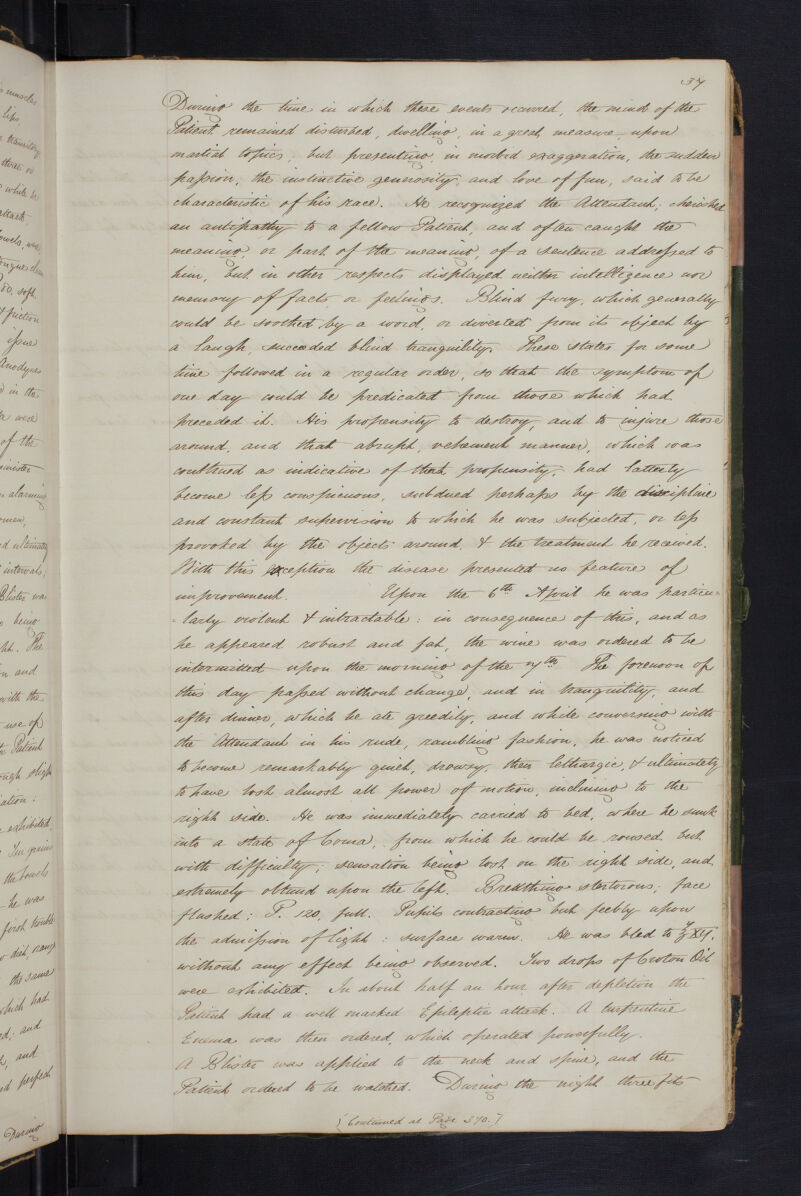 37
During the time in which these events occurred, the mind of the
Patient remained disturbed, dwelling, in a great measure, upon
martial topics, but presenting in morbid exaggeration, the sudden
passion, the instinctive generosity, and love of fun, said to be
characteristic of his race. He recognized the Attendant, cherished
an antipathy to a fellow Patient, and often caught the
meaning, or part of the meaning, of a sentence addressed to
him, but in other respects displayed neither intelligence nor
memory of facts or feelings. Blind fury, which generally
could be soothed by a word, or diverted from its object by
a laugh, succeeded blind tranquility. These states for some
time followed in a regular order, so that the symptom of
one day could be predicated from those which had
preceded it. His propensity to destroy, and to injure those
around, and that abrupt, vehement manner, which was
construed as indicative of that propensity, had latterly
become less conspicuous, subdued perhaps by the discipline
and constant supervision to which he was subjected, or less
provoked by the objects around, & the treatment he received.
With this exception the disease presented no feature of
improvement. Upon the 6th April he was particu-
-larly violent & intractable: in consequence of this, and as
he appeared robust and fat, the wine was ordered to be
intermitted upon the morning of the 7th. The forenoon of
this day passed without change, and in tranquility, and
after dinner, which he ate greedily, and while conversing with
the Attendant in his rude, rambling fashion, he was noticed
to become remarkably quiet, drowsy, then lethargic, & ultimately
to have lost almost all power of motion, inclining to the
right side. He was immediately carried to bed, where he sunk
into a state of Coma, from which he could be roused but
with difficulty; sensation being lost on the right side, and
extremely obtund upon the left. Breathing stertorous; face
flushed: P. 120, full. Pupils contracting but feebly upon
the admission of light: surface warm. He was bled to ℥XII.
without any effect being observed. Two drops of Croton Oil
were exhibited. In about half an hour after depletion the
Patient had a well marked Epileptic attack. A turpentine
Enema was then ordered, which operated powerfully.
A Blister was applied to the neck and spine, and the
Patient ordered to be watched. During the night three fits
[Continued at Page 370.]